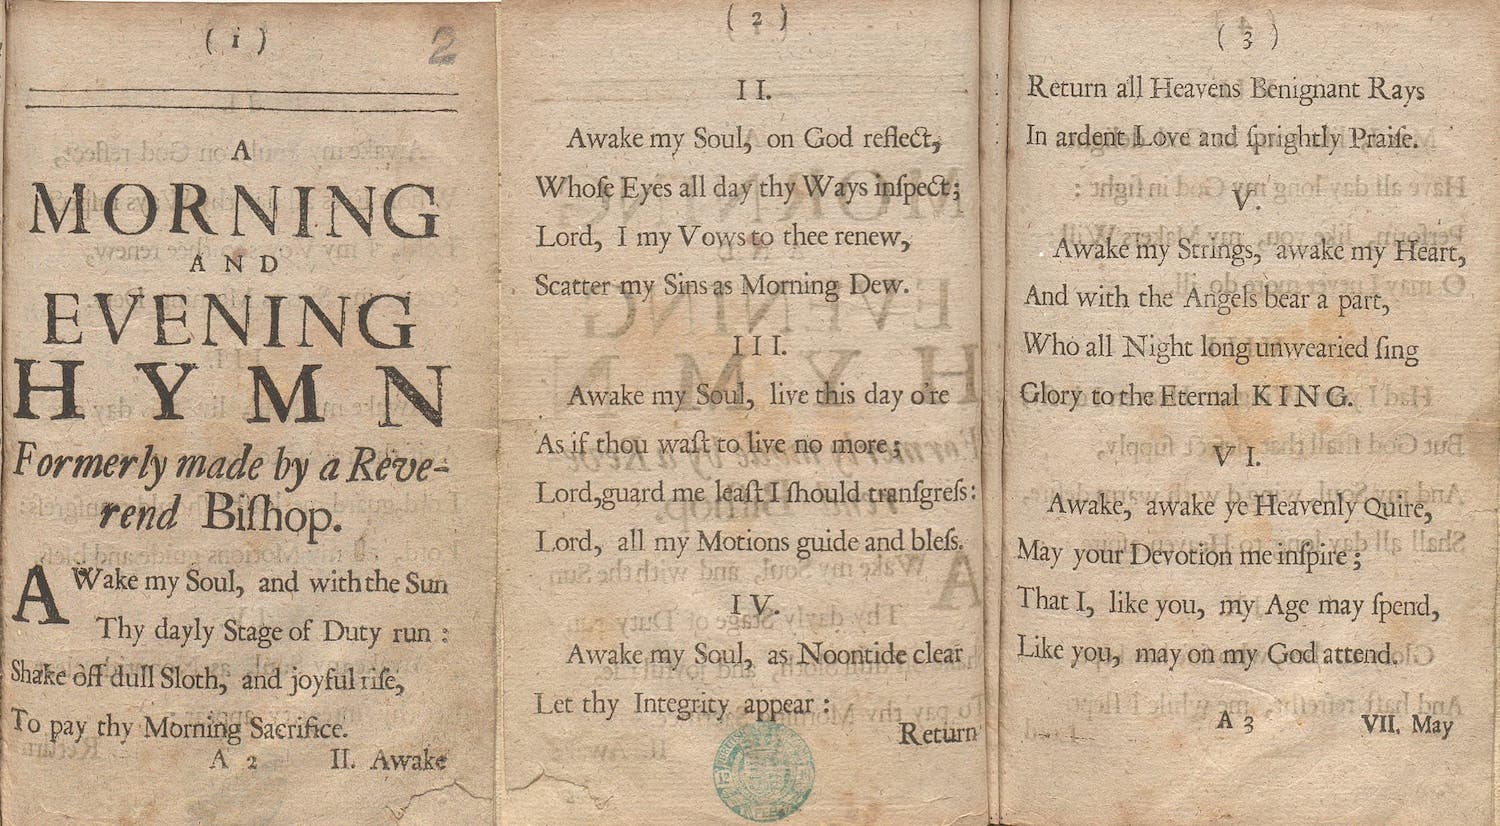 ( 1 )
2
A
MORNING
AND
EVENING
HYMN
Formerly made by a Reve-
rend Biſhop.
AWake my Soul, and with the Sun
Thy dayly Stage of Duty run :
Shake off dull Sloth, and joyful riſe,
To pay thy Morning Sacrifice.
A 2 II. Awake
( 2 )
II.
Awake my Soul, on God reflect,
Whoſe Eyes all day thy Ways inſpect;
Lord, I my Vows to thee renew,
Scatter my Sins as Morning Dew.
III.
Awake my Soul, live this day o're
As if thou waſt to live no more;
Lord,guard me leaſt I ſhould tranſgreſs:
Lord, all my Motions guide and bleſs.
IV.
Awake my Soul, as Noontide clear
Let thy Integrity appear :
Return
( 3 )
Return all Heavens Benignant Rays
In ardent Love and ſprightly Praiſe.
V.
Awake my Strings, awake my Heart,
And with the Angels bear a part,
Who all Night long unwearied ſing
Glory to the Eternal KING.
VI.
Awake, awake ye Heavenly Quire,
May your Devotion me inſpire;
That I, like you, my Age may ſpend,
Like you, may on my God attend.
A 3 VII. May